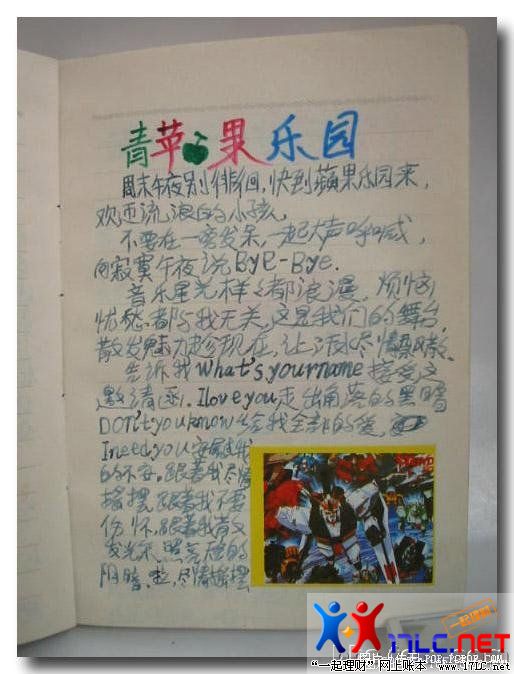 青苹果乐园
周末午夜别徘徊,快到蘋果乐园来,
欢迎流浪的小孩,
不要在一旁发呆,一起大声呼喊,
向寂寞午夜说 Bye-Bye.
音乐星光样样都浪漫,烦恼
忧愁都与我无关,这是我们的舞台,
散发魅力趁现在,让汗水尽情
告诉我 What's your name 接受这
邀请函.I love you走出角落的黑暗
DON't you know 给我全部的爱,
I need you 安慰我
的不安.跟着我尽情
摇摆.跟着我不要
伤怀.跟着我散文
发光热.照亮你的
阴暗.起,尽情摇摆
一起理财
17LC.NET
"一起理财"网上账本:www.17LC.net